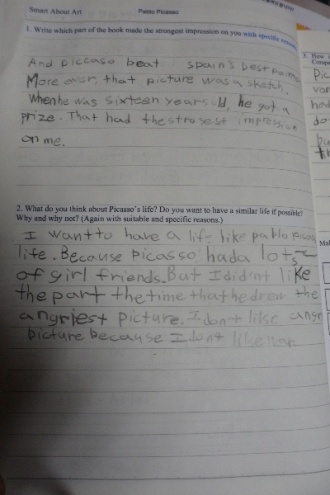 Smart About Art
Pablo Picasso
1. Write which part of the book made the strongest impression on you with specific
And piccaso beat spain's best
More over, that picture was a sketch.
When he was sixteen years old, he got a
prize. That had the strogest impression
on me.
2. What do you think about Picasso's life? Do you want to have a similar life if possible?
Why and why not? (Again with suitable and specific reasons.)
I want to have a life like pablo
life. Because picasso had a lots
of girl friends. But I didn't like
the part the time that he drew the
angriest picture. I don't like
picture because I don't like